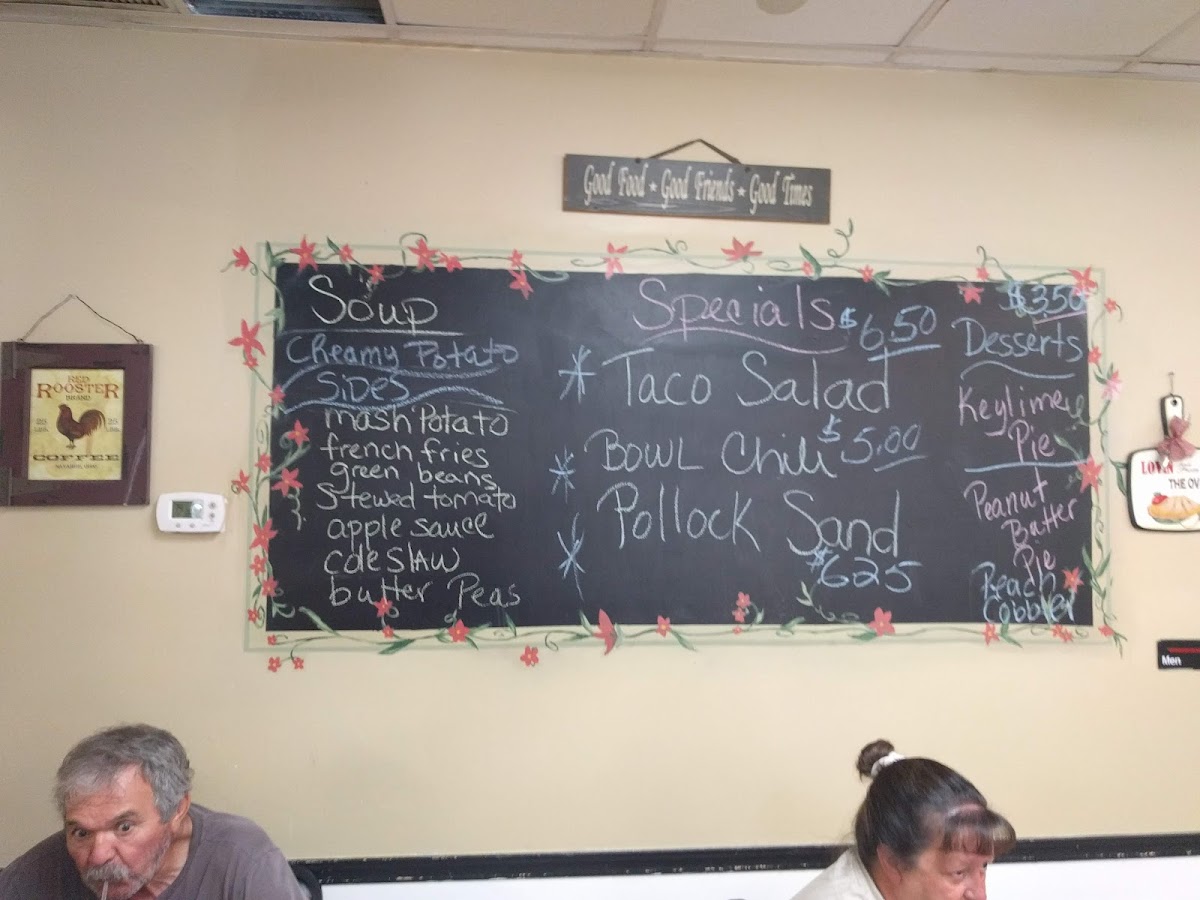 Good Food ★ Good Friends ★ Good Times
Soup
Creamy Potato
Sides
mash Potato
french fries
green beans
Stewed tomato
apple sauce
cole slaw
butter Peas
Specials
$6.50
* Taco Salad
* Bowl Chili $5.00
* Pollock Sand
$625
$3.50
Desserts
Keylime
Pie
Peanut
Butter
Pie
Peach
Cobbler
RED
ROOSTER
BRAND
COFFEE
THE OV
Men